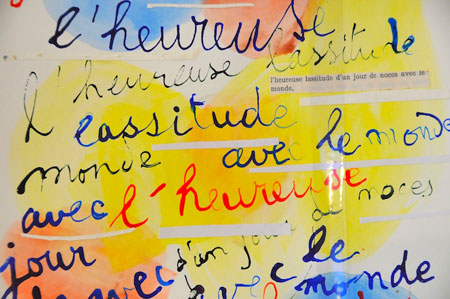 l'heureuse
l'heureuse lassitude
l'heureuse lassitude d'un jour de noces avec le
monde.
lassitude
monde avec le monde
avec l'heureuse
jour d'un jour de noces
avec avec le
monde